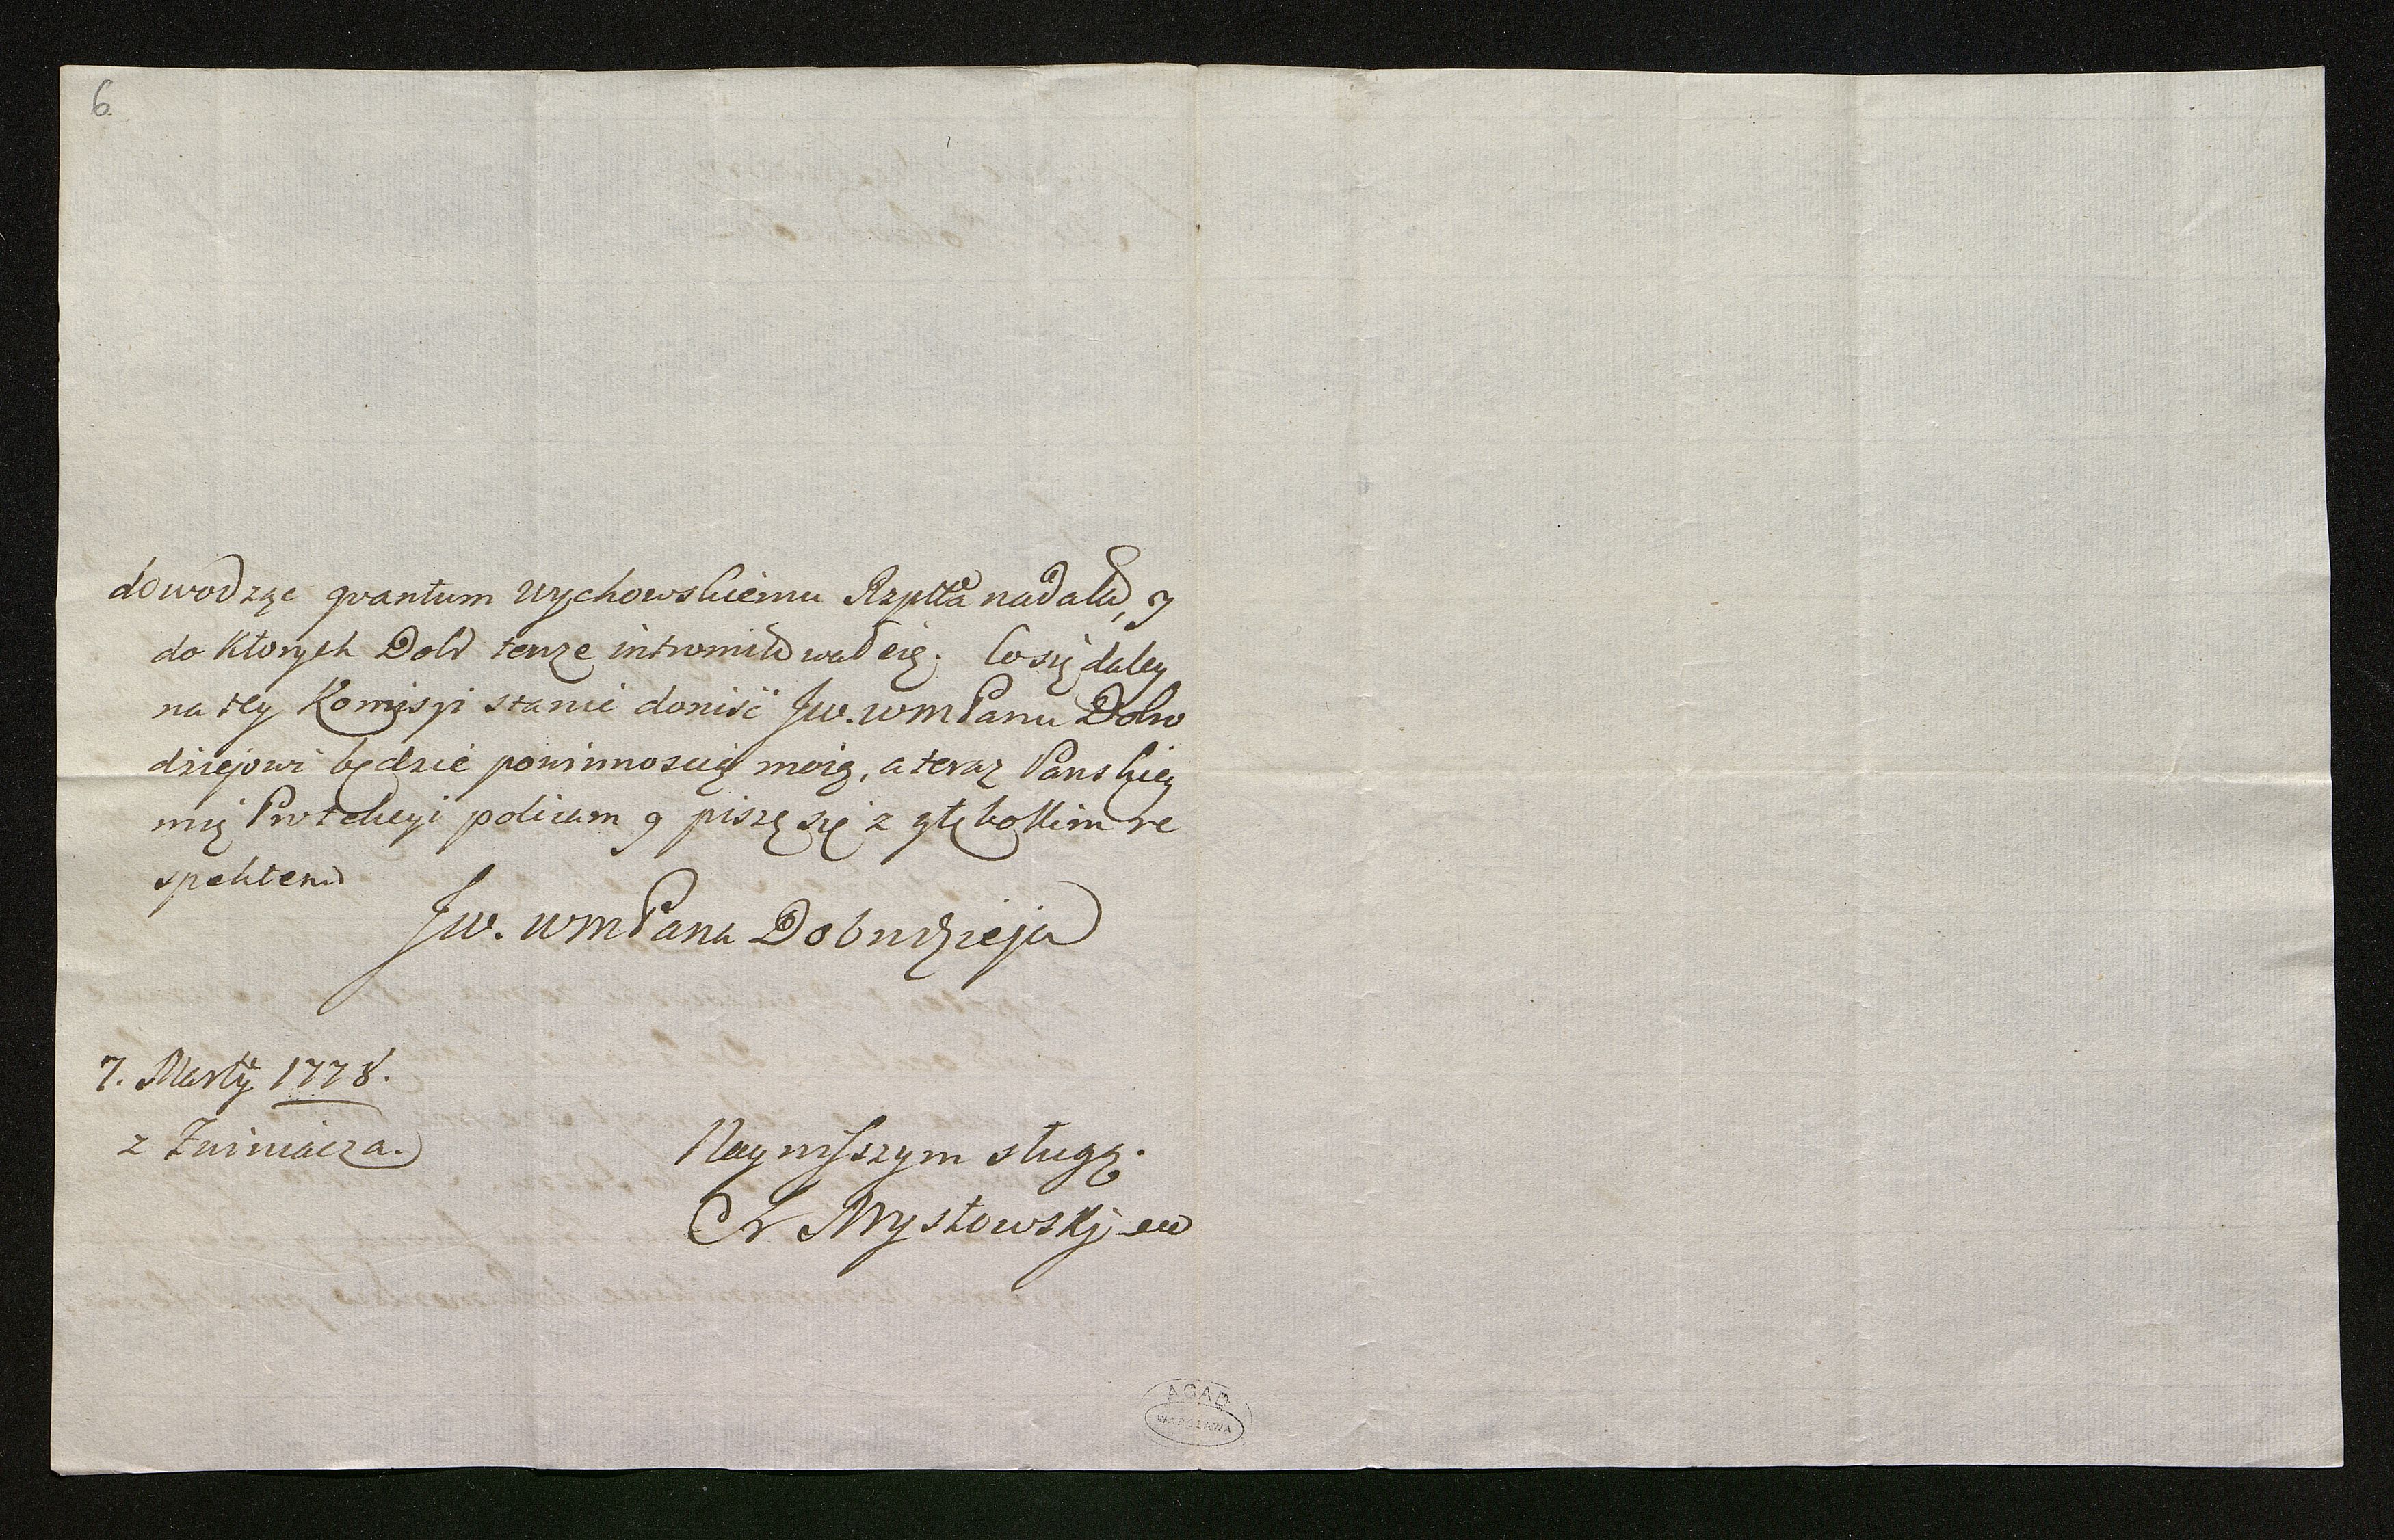 6
dowodząc qvantum Wychowskiemu Rzpltta nadała, y
do Ktorych Dobr tenże intromittował się. Co się daley
na tey Komisyi stanie donisć Jw. wmPanu Dobro
dziejowi będzie powinnoscią moią, a teraz Panskiey
mię Protekcyi policam y piszę się z głębokim re
spektem
Jw. wmPana Dobrodzieja
7. Marty 1778.
z Zwiniacza.
Nayniższym sługą.
Mysłowskj
AGAD
WARSZAWA